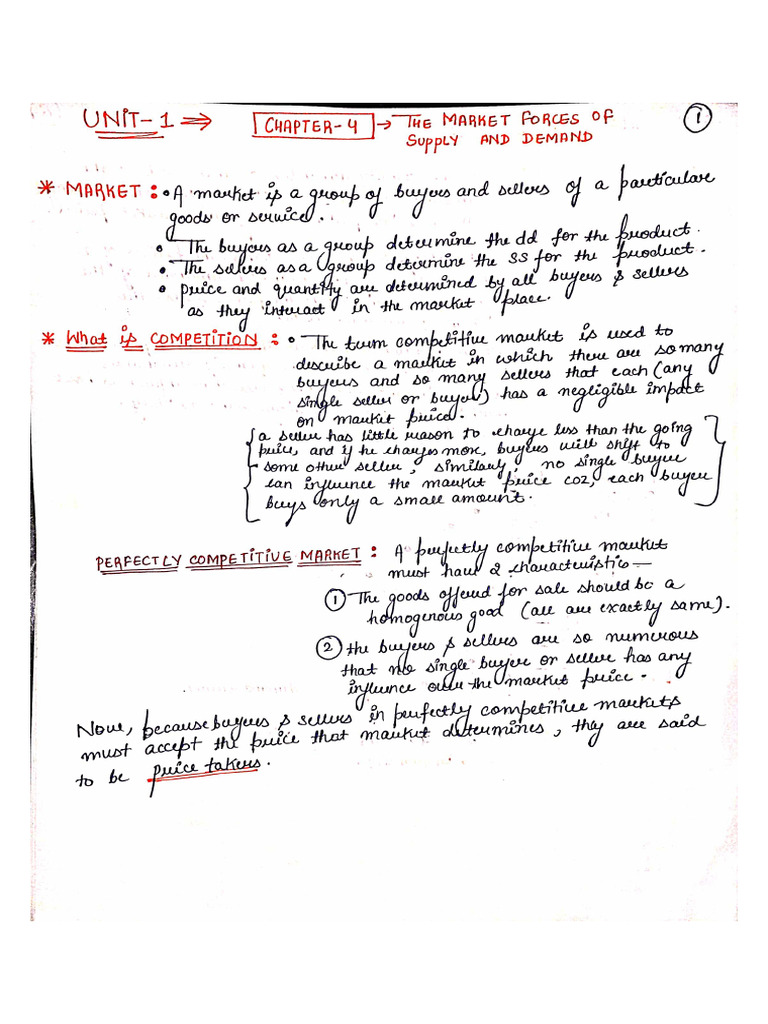 UNIT-1 ⇒ CHAPTER-4 → THE MARKET FORCES OF 1
SUPPLY AND DEMAND
* MARKET : • A market is a group of buyers and sellers of a particular
goods or service.
• The buyers as a group determine the dd for the product.
• The sellers as a group determine the SS for the product.
• price and quantity are determined by all buyers & sellers
as they interact in the market place.
* What is COMPETITION : • The term competitive market is used to
describe a market in which there are so many
buyers and so many sellers that each (any
single seller or buyer) has a negligible impact
on market price.
{ a seller has little reason to charge less than the going
price, and if he charges more, buyers will shift to
some other seller, similarly, no single buyer
can influence the market price coz, each buyer
buys only a small amount. }
PERFECTLY COMPETITIVE MARKET : A perfectly competitive market
must have 2 characteristics —
1 The goods offered for sale should be a
homogenous good (all are exactly same).
2 the buyers & sellers are so numerous
that no single buyer or seller has any
influence over the market price.
Now, because buyers & sellers in perfectly competitive markets
must accept the price that market determines, they are said
to be price takers.